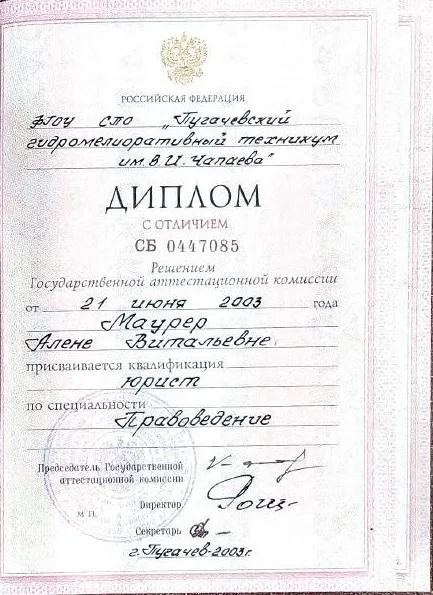 РОССИЙСКАЯ ФЕДЕРАЦИЯ
ФГОУ СПО „Пугачевский
гидромелиоративный техникум
им. В. И. Чапаева"
ДИПЛОМ
С ОТЛИЧИЕМ
СБ 0447085
Решением
Государственной аттестационной комиссии
от 21 июня 2003 года
Маурер
Алене Витальевне
присваивается квалификация
юрист
по специальности
Правоведение
Председатель Государственной
аттестационной комиссии
Директор
М П.
Секретарь
г. Пугачев - 2003 г.